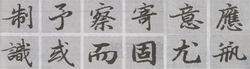 制予察寄意應
識或而固尤瓶